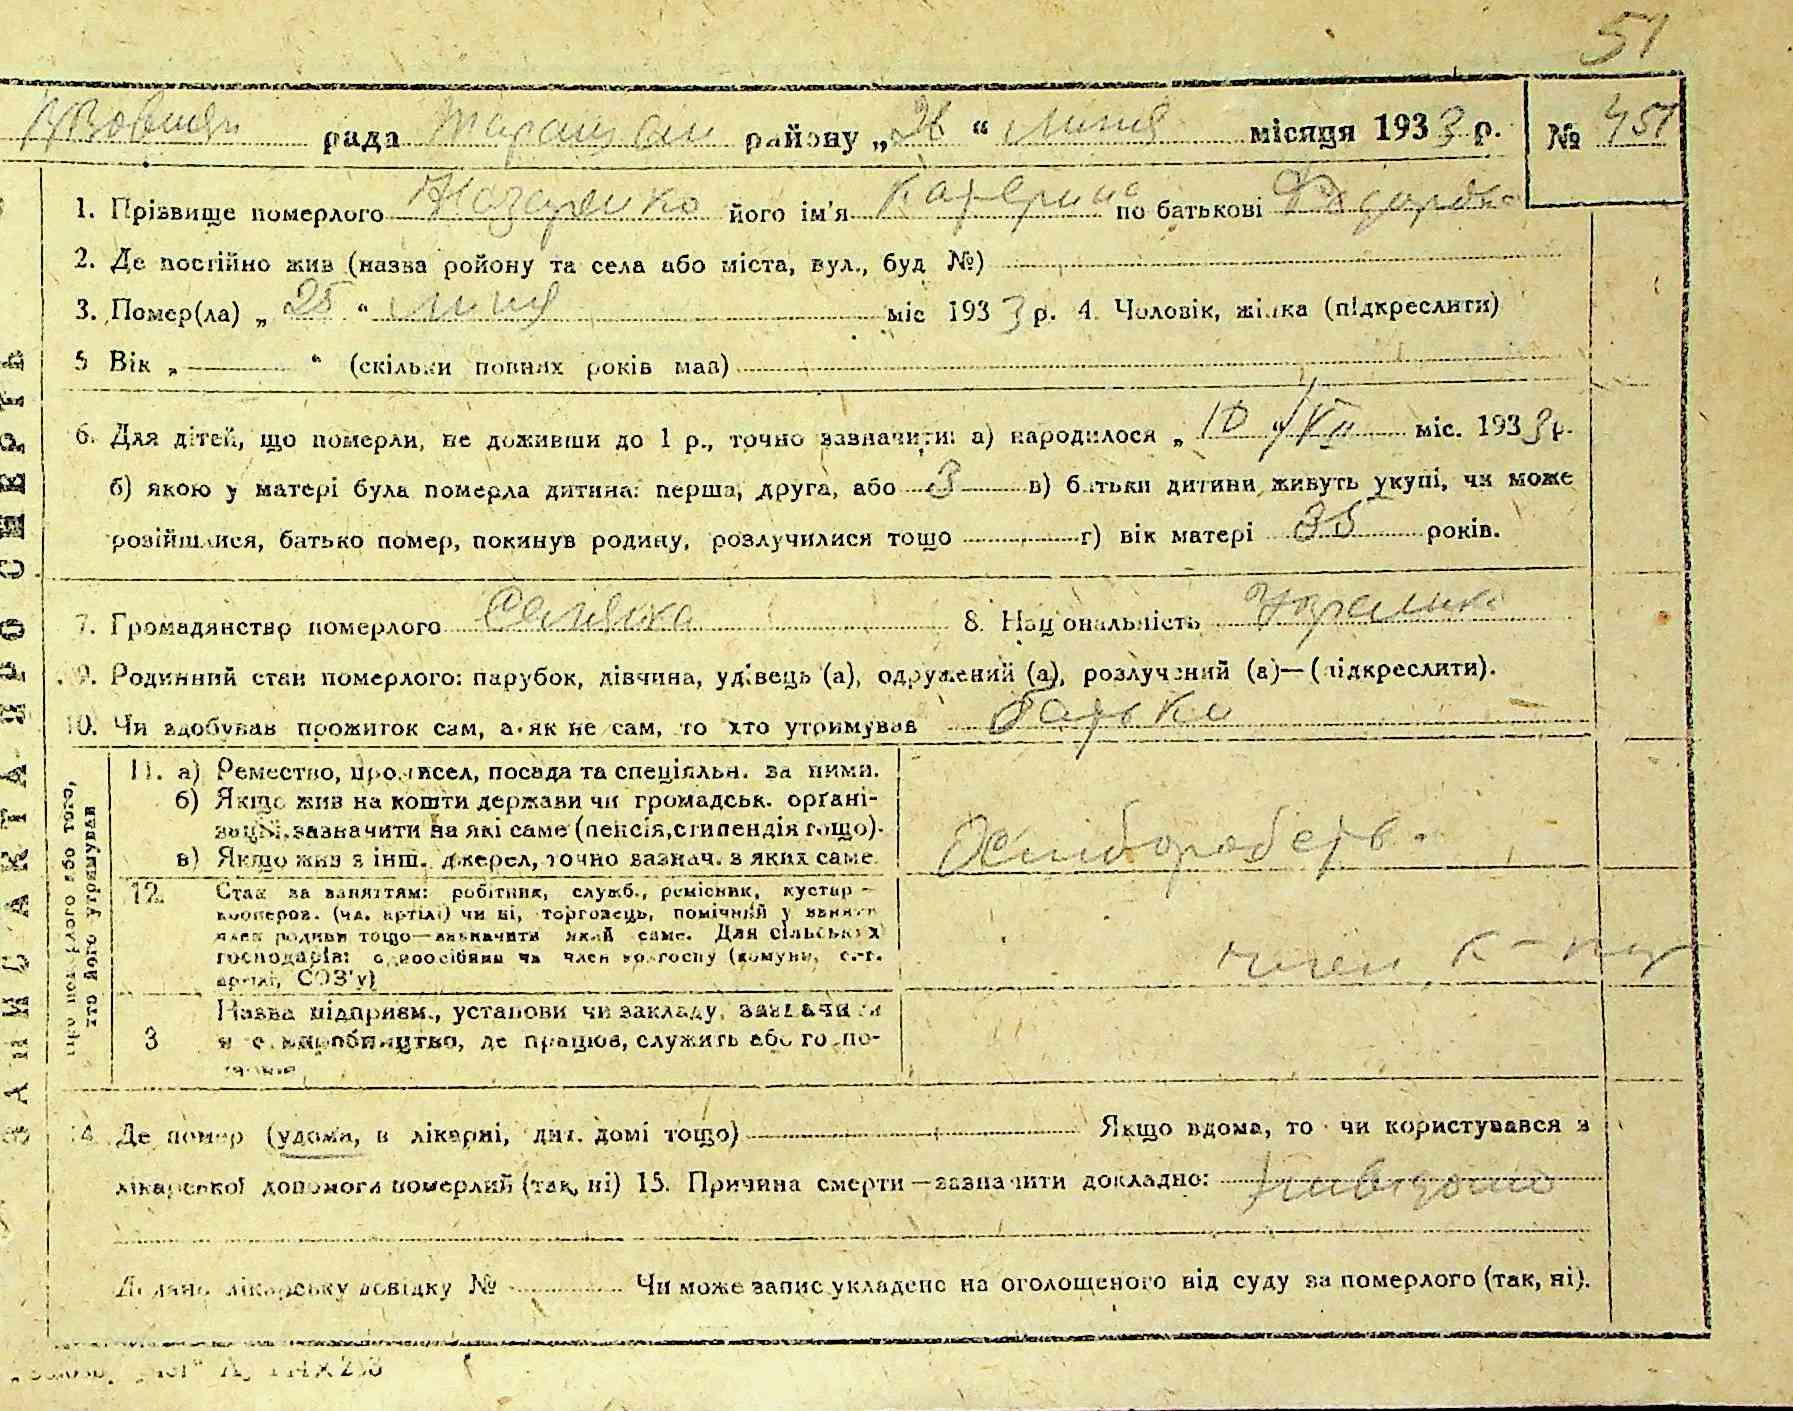 51
рада район у „26“ липня місяця 1933 р. № 451
1. Прізвище померлого Назаренко його ім'я Катерина по батькові Федорівна
2. Де постійно жив (назва ройону та села або міста, вул., буд №)
3. Помер(ла) „25“ липня міс 1933 р. 4. Чоловік, жінка (підкреслити)
5 Вік „ “ (скільки повних років мав)
6. Для дітей, що померли, не доживши до 1 р., точно зазначити: а) народилося „10“ VII міс. 1933 р.
б) якою у матері була померла дитина: перша, друга, або 3 в) батьки дитини живуть укупі, чи може
розійшлися, батько помер, покинув родину, розлучилися тощо г) вік матері 35 років.
7. Громадянство померлого Селянка 8. Національність Українка
9. Родинний стан померлого: парубок, дівчина, удівець (а), одружений (а), розлучений (а)—(підкреслити).
10. Чи здобував прожиток сам, а як не сам, то хто утримував Батько
ЗАПИС АКТА ПРО СМЕРТЬ
про померлого або того, хто його утримував
11. а) Ремество, промисел, посада та спеціяльн. за ними.
б) Якщо жив на кошти держави чи громадськ. органі-
зацій, зазначити на які саме (пенсія, стипендія тощо).
в) Якщо жив з інш. джерел, точно зазнач. з яких саме.
Хлібороб
12. Стан за заняттям: робітник, служб., ремісник, кустар —
кооперов. (чл. артілі) чи ні, торговець, помічний у занятті
член родини тощо—зазначити який саме. Для сільських
господарів: одноосібник чи член колгоспу (комуни, с.-г.
артілі, СОЗ'у)
член к-пу
3 Назва підприєм., установи чи закладу, зазначити
виробництво, де працює, служить або го по-
14 Де помер (удома, в лікарні, дит. домі тощо) Якщо вдома, то чи користувався з
лікарської допомоги померлий (так, ні) 15. Причина смерти—зазначити докладно: Невідомо
Додано лікарську довідку № Чи може запис укладено на оголошеного від суду за померлого (так, ні).